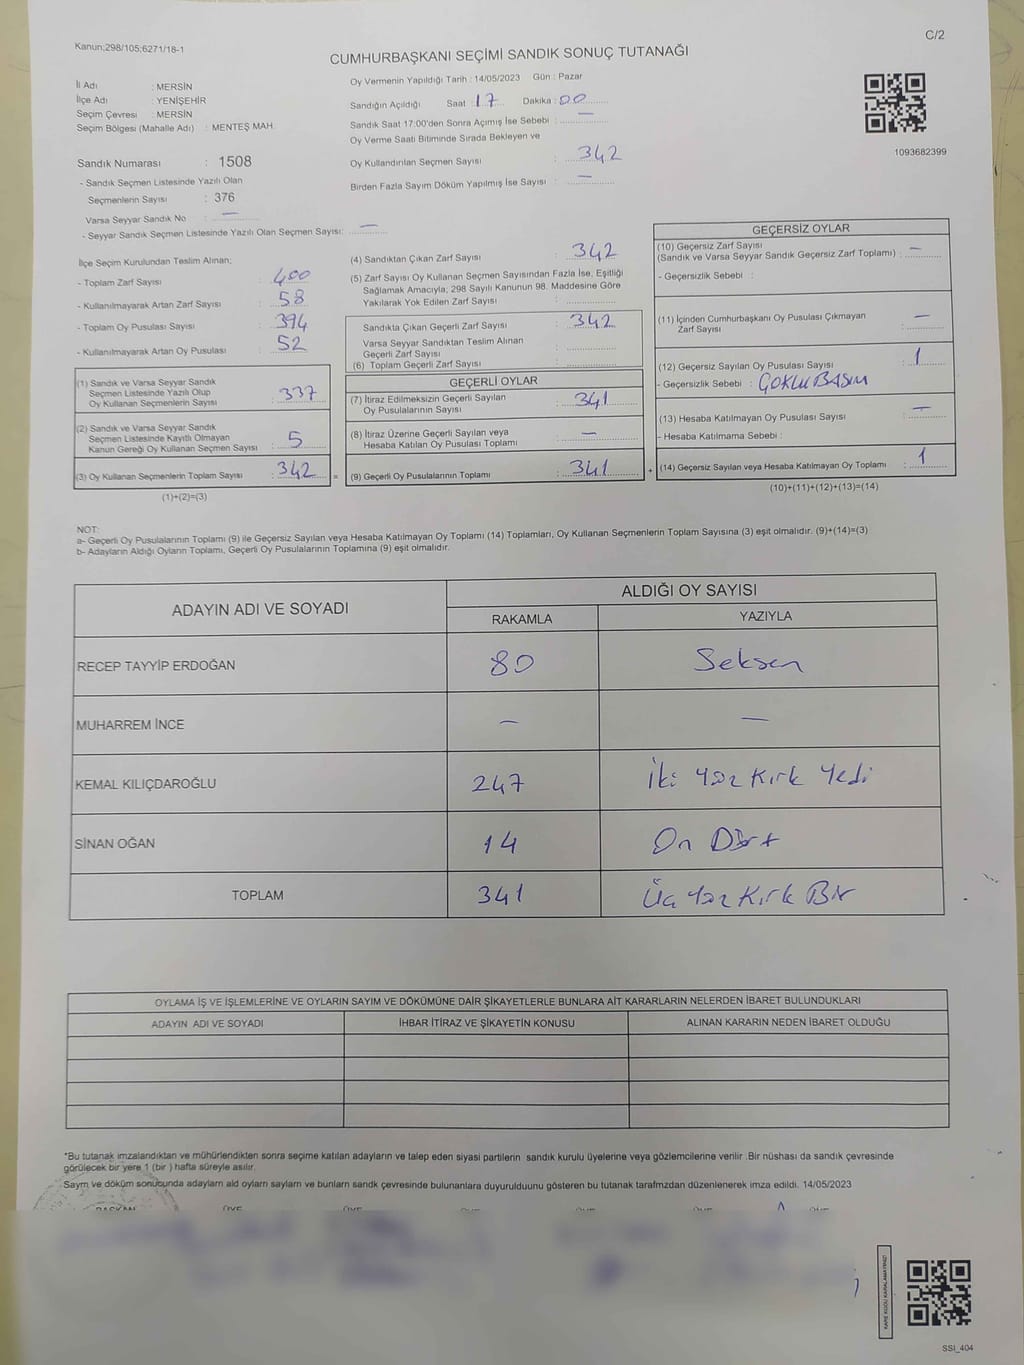 Kanun;298/105;6271/18-1
C/2
CUMHURBAŞKANI SEÇİMİ SANDIK SONUÇ TUTANAĞI
İl Adı : MERSİN
İlçe Adı : YENİŞEHİR
Seçim Çevresi : MERSİN
Seçim Bölgesi (Mahalle Adı) : MENTEŞ MAH.
Sandık Numarası : 1508
- Sandık Seçmen Listesinde Yazılı Olan
Seçmenlerin Sayısı : 376
Varsa Seyyar Sandık No : —
- Seyyar Sandık Seçmen Listesinde Yazılı Olan Seçmen Sayısı: —
Oy Vermenin Yapıldığı Tarih : 14/05/2023 Gün : Pazar
Sandığın Açıldığı Saat : 17 Dakika : 00
Sandık Saat 17:00'den Sonra Açımış İse Sebebi : —
Oy Verme Saati Bitiminde Sırada Bekleyen ve
Oy Kullandırılan Seçmen Sayısı : 342
Birden Fazla Sayım Döküm Yapılmış İse Sayısı : —
1093682399
İlçe Seçim Kurulundan Teslim Alınan;
- Toplam Zarf Sayısı : 400
- Kullanılmayarak Artan Zarf Sayısı : 58
- Toplam Oy Pusulası Sayısı : 394
- Kullanılmayarak Artan Oy Pusulası : 52
(1) Sandık ve Varsa Seyyar Sandık
Seçmen Listesinde Yazılı Olup
Oy Kullanan Seçmenlerin Sayısı : 337
(2) Sandık ve Varsa Seyyar Sandık
Seçmen Listesinde Kayıtlı Olmayan
Kanun Gereği Oy Kullanan Seçmen Sayısı : 5
(3) Oy Kullanan Seçmenlerin Toplam Sayısı : 342 =
(1)+(2)=(3)
(4) Sandıktan Çıkan Zarf Sayısı : 342
(5) Zarf Sayısı Oy Kullanan Seçmen Sayısından Fazla İse, Eşitliği
Sağlamak Amacıyla; 298 Sayılı Kanunun 98. Maddesine Göre
Yakılarak Yok Edilen Zarf Sayısı :
Sandıkta Çıkan Geçerli Zarf Sayısı : 342
Varsa Seyyar Sandıktan Teslim Alınan
Geçerli Zarf Sayısı :
(6) Toplam Geçerli Zarf Sayısı :
GEÇERLİ OYLAR
(7) İtiraz Edilmeksizin Geçerli Sayılan
Oy Pusulalarının Sayısı : 341
(8) İtiraz Üzerine Geçerli Sayılan veya
Hesaba Katılan Oy Pusulası Toplamı : —
(9) Geçerli Oy Pusulalarının Toplamı : 341 +
GEÇERSİZ OYLAR
(10) Geçersiz Zarf Sayısı
(Sandık ve Varsa Seyyar Sandık Geçersiz Zarf Toplamı) : —
- Geçersizlik Sebebi :
(11) İçinden Cumhurbaşkanı Oy Pusulası Çıkmayan
Zarf Sayısı : —
(12) Geçersiz Sayılan Oy Pusulası Sayısı : 1
- Geçersizlik Sebebi : ÇOKLU BASIM
(13) Hesaba Katılmayan Oy Pusulası Sayısı : —
- Hesaba Katılmama Sebebi :
(14) Geçersiz Sayılan veya Hesaba Katılmayan Oy Toplamı : 1
(10)+(11)+(12)+(13)=(14)
NOT:
a- Geçerli Oy Pusulalarının Toplamı (9) ile Geçersiz Sayılan veya Hesaba Katılmayan Oy Toplamı (14) Toplamları, Oy Kullanan Seçmenlerin Toplam Sayısına (3) eşit olmalıdır. (9)+(14)=(3)
b- Adayların Aldığı Oyların Toplamı, Geçerli Oy Pusulalarının Toplamına (9) eşit olmalıdır.
ADAYIN ADI VE SOYADI ALDIĞI OY SAYISI
RAKAMLA YAZIYLA
RECEP TAYYİP ERDOĞAN 80 Seksen
MUHARREM İNCE — —
KEMAL KILIÇDAROĞLU 247 İki yüz Kırk Yedi
SİNAN OĞAN 14 On Dört
TOPLAM 341 Üç yüz Kırk Bir
OYLAMA İŞ VE İŞLEMLERİNE VE OYLARIN SAYIM VE DÖKÜMÜNE DAİR ŞİKAYETLERLE BUNLARA AİT KARARLARIN NELERDEN İBARET BULUNDUKLARI
ADAYIN ADI VE SOYADI İHBAR İTİRAZ VE ŞİKAYETİN KONUSU ALINAN KARARIN NEDEN İBARET OLDUĞU
*Bu tutanak imzalandıktan ve mühürlendikten sonra seçime katılan adayların ve talep eden siyasi partilerin sandık kurulu üyelerine veya gözlemcilerine verilir .Bir nüshası da sandık çevresinde
görülecek bir yere 1 (bir ) hafta süreyle asılır.
Sayım ve döküm sonucunda adayların ald oyların sayların ve bunların sandk çevresinde bulunanlara duyurulduunu gösteren bu tutanak tarafmzdan düzenlenerek imza edildi. 14/05/2023
BAŞKAN ÜYE ÜYE ÜYE ÜYE ÜYE ÜYE
KARE KODU KARALAMAYINIZ!
SSI_404